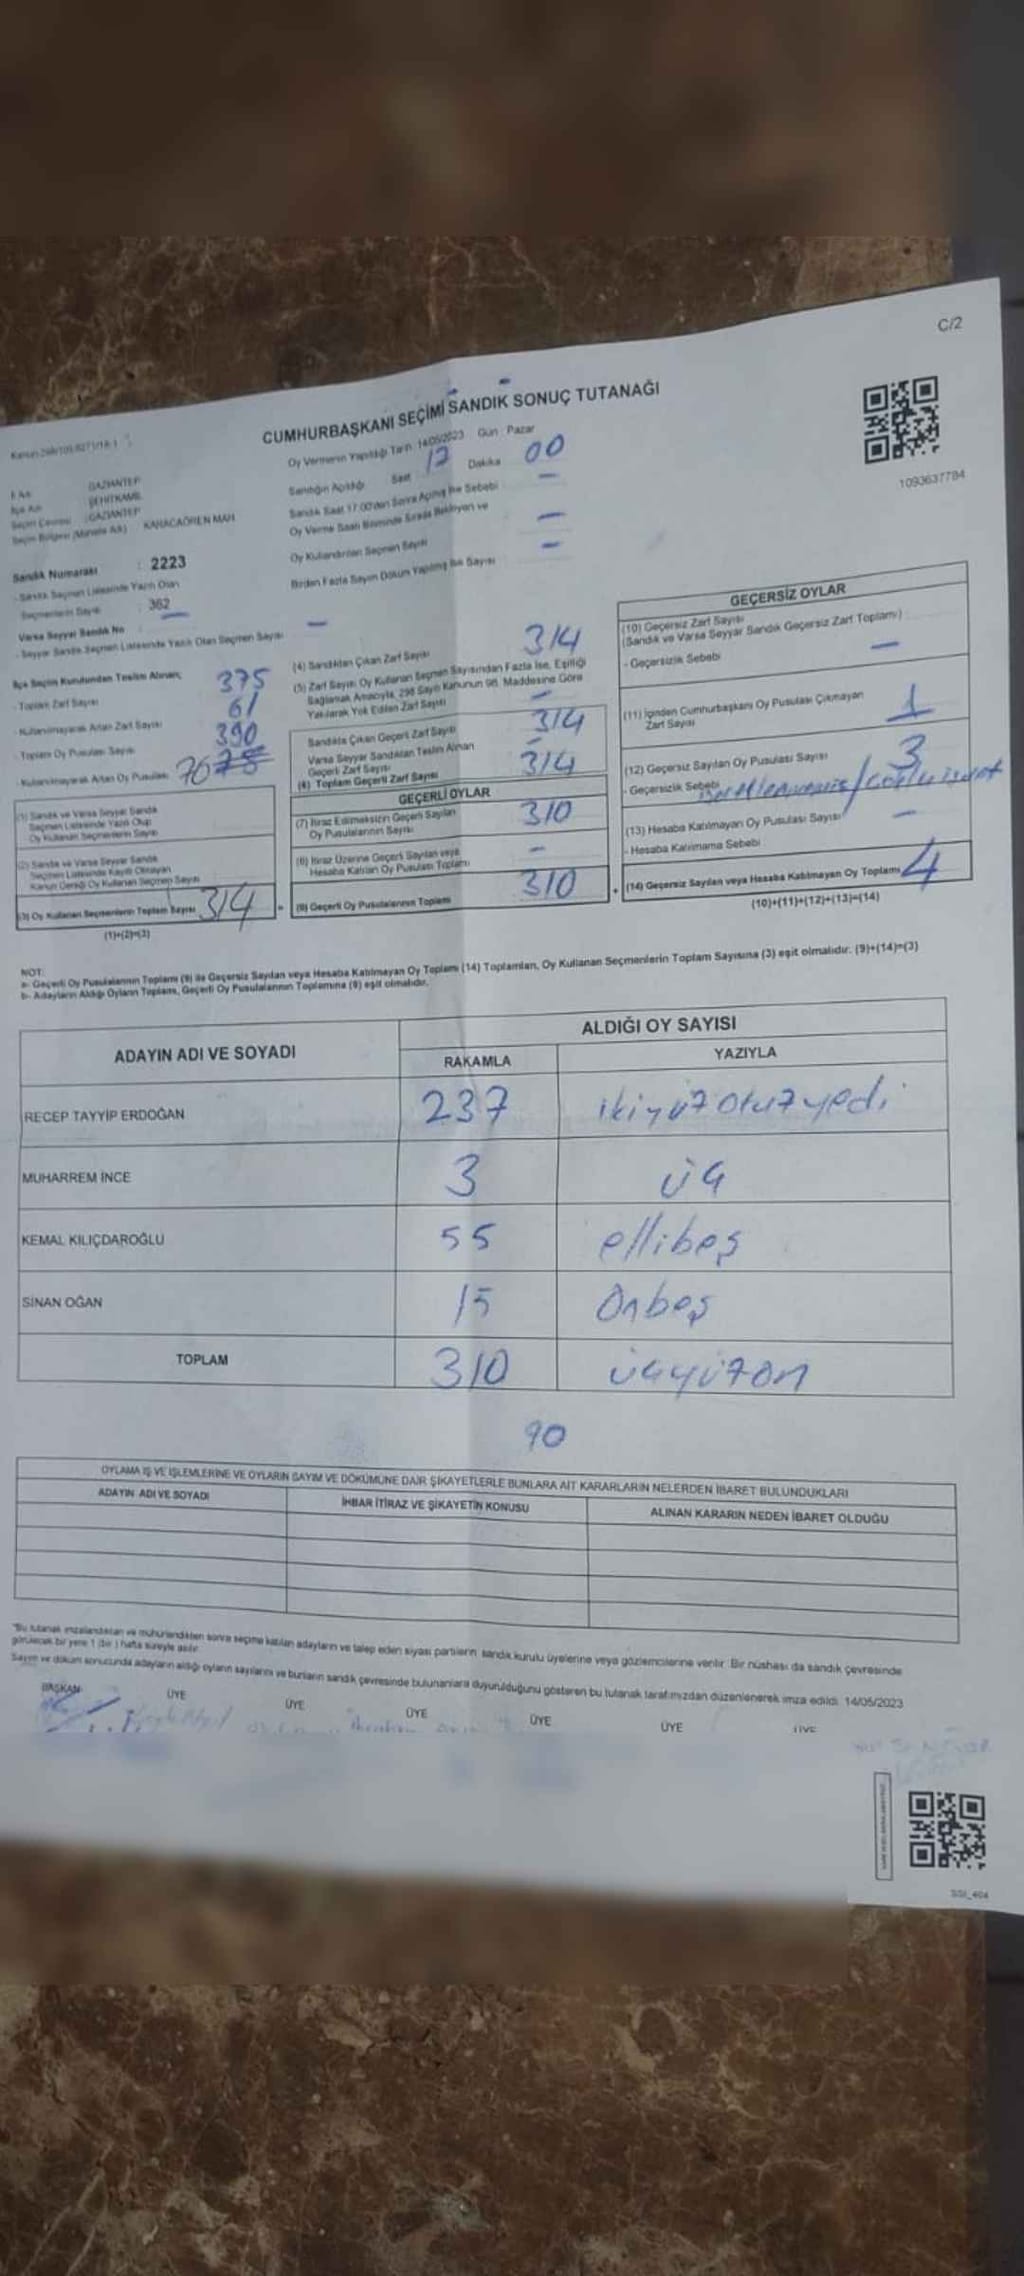 C/2
CUMHURBAŞKANI SEÇİMİ SANDIK SONUÇ TUTANAĞI
Oy Vermenin Yapıldığı Tarih 14/05/2023 Gün Pazar
İl Adı GAZİANTEP
İlçe Adı ŞEHİTKAMİL
Seçim Çevresi : GAZİANTEP
Seçim Bölgesi (Mahalle Adı) KARACAÖREN MAH.
Sandık Numarası : 2223
- Sandık Seçmen Listesinde Yazılı Olan
Seçmenlerin Sayısı : 362
Varsa Seyyar Sandık No -
- Seyyar Sandık Seçmen Listesinde Yazılı Olan Seçmen Sayısı -
İlçe Seçim Kurulundan Teslim Alınan;
- Toplam Zarf Sayısı 375
- Kullanılmayarak Artan Zarf Sayısı 61
- Toplam Oy Pusulası Sayısı 390
- Kullanılmayarak Artan Oy Pusulası
(1) Sandık ve Varsa Seyyar Sandık
Seçmen Listesinde Yazılı Olup
Oy Kullanan Seçmenlerin Sayısı
(2) Sandık ve Varsa Seyyar Sandık
Seçmen Listesinde Kayıtlı Olmayan
Kanun Gereği Oy Kullanan Seçmen Sayısı
(3) Oy Kullanan Seçmenlerin Toplam Sayısı 314
(1)+(2)=(3)
Sandığın Açıldığı Saat 17 Dakika 00
Sandık Saat 17:00'den Sonra Açılmış İse Sebebi -
Oy Verme Saati Bitiminde Sırada Bekleyen ve
Oy Kullandırılan Seçmen Sayısı -
Birden Fazla Sayım Döküm Yapılmış İse Sayısı -
(4) Sandıktan Çıkan Zarf Sayısı 314
(5) Zarf Sayısı Oy Kullanan Seçmen Sayısından Fazla İse, Eşitliği
Sağlamak Amacıyla, 298 Sayılı Kanunun 98. Maddesine Göre
Yakılarak Yok Edilen Zarf Sayısı -
Sandıkta Çıkan Geçerli Zarf Sayısı 314
Varsa Seyyar Sandıktan Teslim Alınan
Geçerli Zarf Sayısı -
(6) Toplam Geçerli Zarf Sayısı 314
GEÇERLİ OYLAR
(7) İtiraz Edilmeksizin Geçerli Sayılan
Oy Pusulalarının Sayısı 310
(8) İtiraz Üzerine Geçerli Sayılan veya
Hesaba Katılan Oy Pusulası Toplamı -
(9) Geçerli Oy Pusulalarının Toplamı 310
1093637784
GEÇERSİZ OYLAR
(10) Geçersiz Zarf Sayısı
(Sandık ve Varsa Seyyar Sandık Geçersiz Zarf Toplamı)
- Geçersizlik Sebebi -
(11) İçinden Cumhurbaşkanı Oy Pusulası Çıkmayan
Zarf Sayısı 1
(12) Geçersiz Sayılan Oy Pusulası Sayısı 3
- Geçersizlik Sebebi
(13) Hesaba Katılmayan Oy Pusulası Sayısı -
- Hesaba Katılmama Sebebi
(14) Geçersiz Sayılan veya Hesaba Katılmayan Oy Toplamı 4
(10)+(11)+(12)+(13)=(14)
NOT:
a- Geçerli Oy Pusulalarının Toplamı (9) ile Geçersiz Sayılan veya Hesaba Katılmayan Oy Toplamı (14) Toplamları, Oy Kullanan Seçmenlerin Toplam Sayısına (3) eşit olmalıdır. (9)+(14)=(3)
b- Adayların Aldığı Oyların Toplamı, Geçerli Oy Pusulalarının Toplamına (9) eşit olmalıdır.
ADAYIN ADI VE SOYADI
ALDIĞI OY SAYISI
RAKAMLA YAZIYLA
RECEP TAYYİP ERDOĞAN 237 ikiyüzotuzyedi
MUHARREM İNCE 3 üç
KEMAL KILIÇDAROĞLU 55 ellibeş
SİNAN OĞAN 15 Onbeş
TOPLAM 310 üçyüzon
90
OYLAMA İŞ VE İŞLEMLERİNE VE OYLARIN SAYIM VE DÖKÜMÜNE DAİR ŞİKAYETLERLE BUNLARA AİT KARARLARIN NELERDEN İBARET BULUNDUKLARI
ADAYIN ADI VE SOYADI İHBAR İTİRAZ VE ŞİKAYETİN KONUSU ALINAN KARARIN NEDEN İBARET OLDUĞU
*Bu tutanak imzalandıktan ve mühürlendikten sonra seçime katılan adayların ve talep eden siyasi partilerin sandık kurulu üyelerine veya gözlemcilerine verilir. Bir nüshası da sandık çevresinde
görülecek bir yere 1 (bir) hafta süreyle asılır.
Sayım ve döküm sonucunda adayların aldığı oyların sayılarını ve bunların sandık çevresinde bulunanlara duyurulduğunu gösteren bu tutanak tarafımızdan düzenlenerek imza edildi. 14/05/2023
BAŞKAN ÜYE ÜYE ÜYE ÜYE ÜYE ÜYE